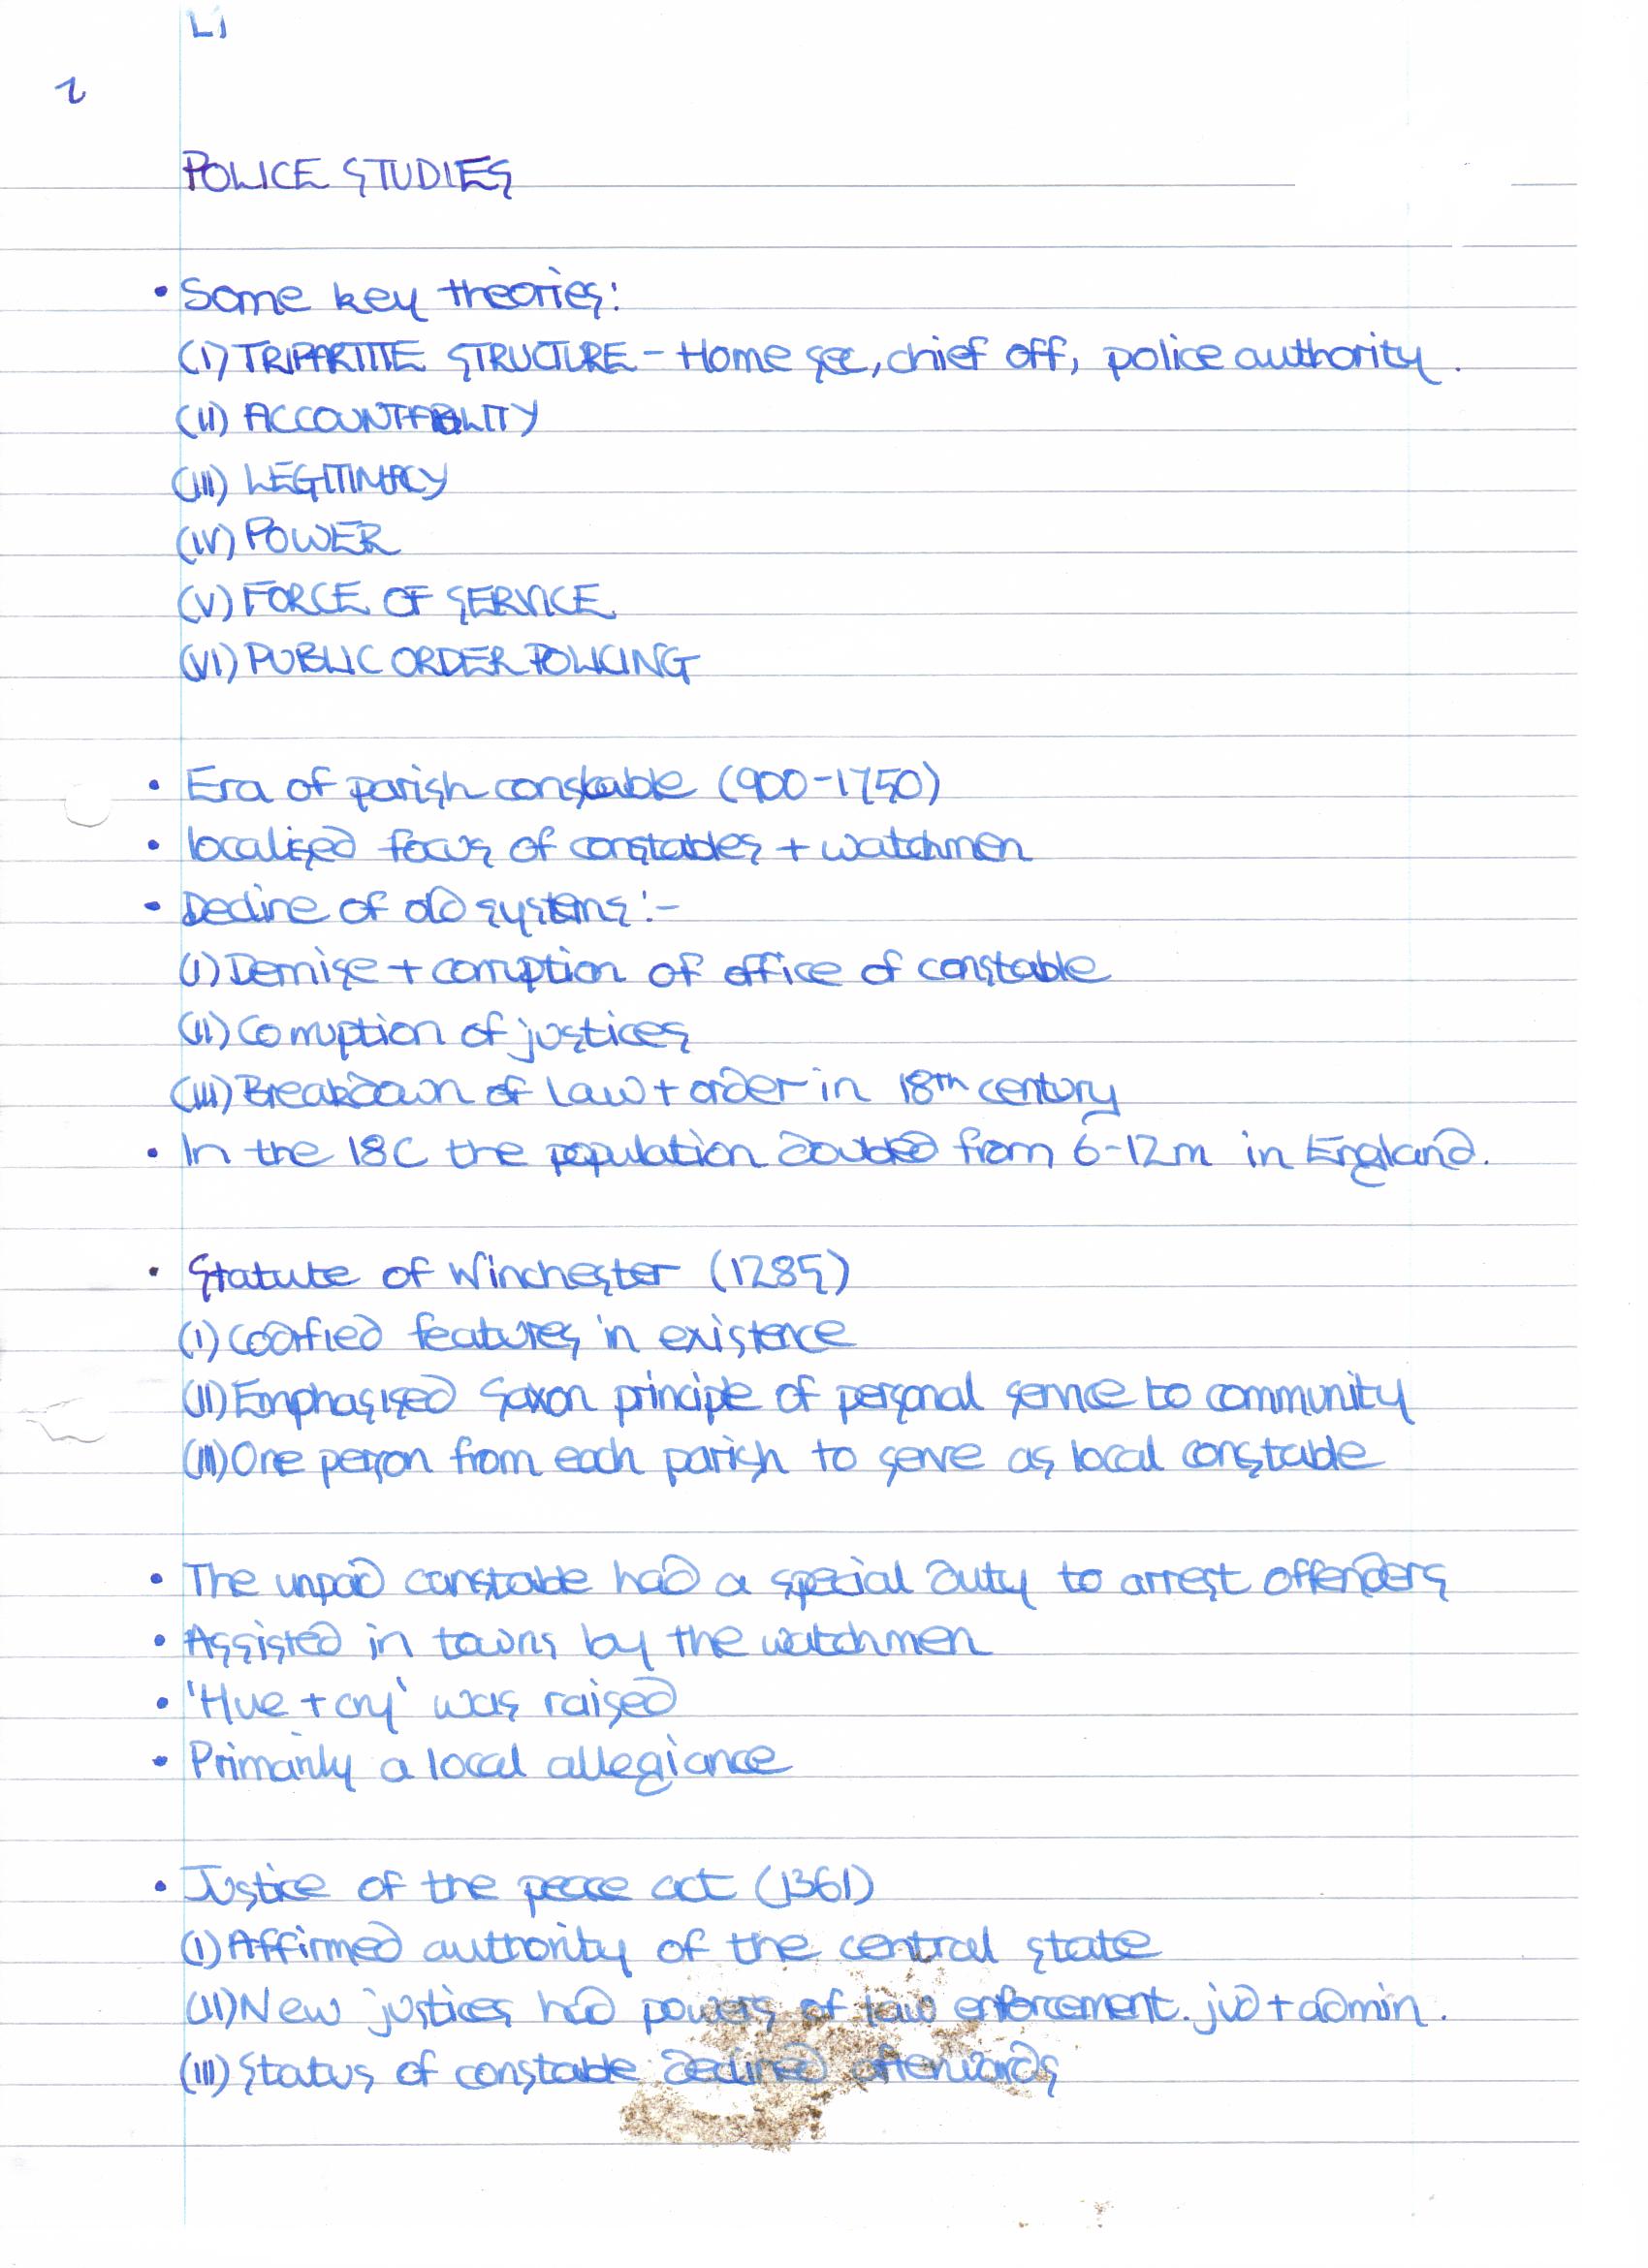 L1
2
POLICE STUDIES
• Some key theories:
(I) TRIPARTITE STRUCTURE - Home sec, chief off, police authority.
(II) ACCOUNTABILITY
(III) LEGITIMACY
(IV) POWER
(V) FORCE OF SERVICE
(VI) PUBLIC ORDER POLICING
• Era of parish constable (900-1750)
• localised focus of constables + watchmen
• Decline of old systems:-
(I) Demise + corruption of office of constable
(II) Corruption of justices
(III) Breakdown of law + order in 18th century
• In the 18C the population doubled from 6-12m in England.
• Statute of Winchester (1285)
(I) Codified features in existence
(II) Emphasised Saxon principle of personal service to community
(III) One person from each parish to serve as local constable
• The unpaid constable had a special duty to arrest offenders
• Assisted in towns by the watchmen
• 'Hue + cry' was raised
• Primarily a local allegiance
• Justice of the peace act (1361)
(I) Affirmed authority of the central state
(II) New justices had powers of law enforcement. jud + admin.
(III) Status of constable declined afterwards